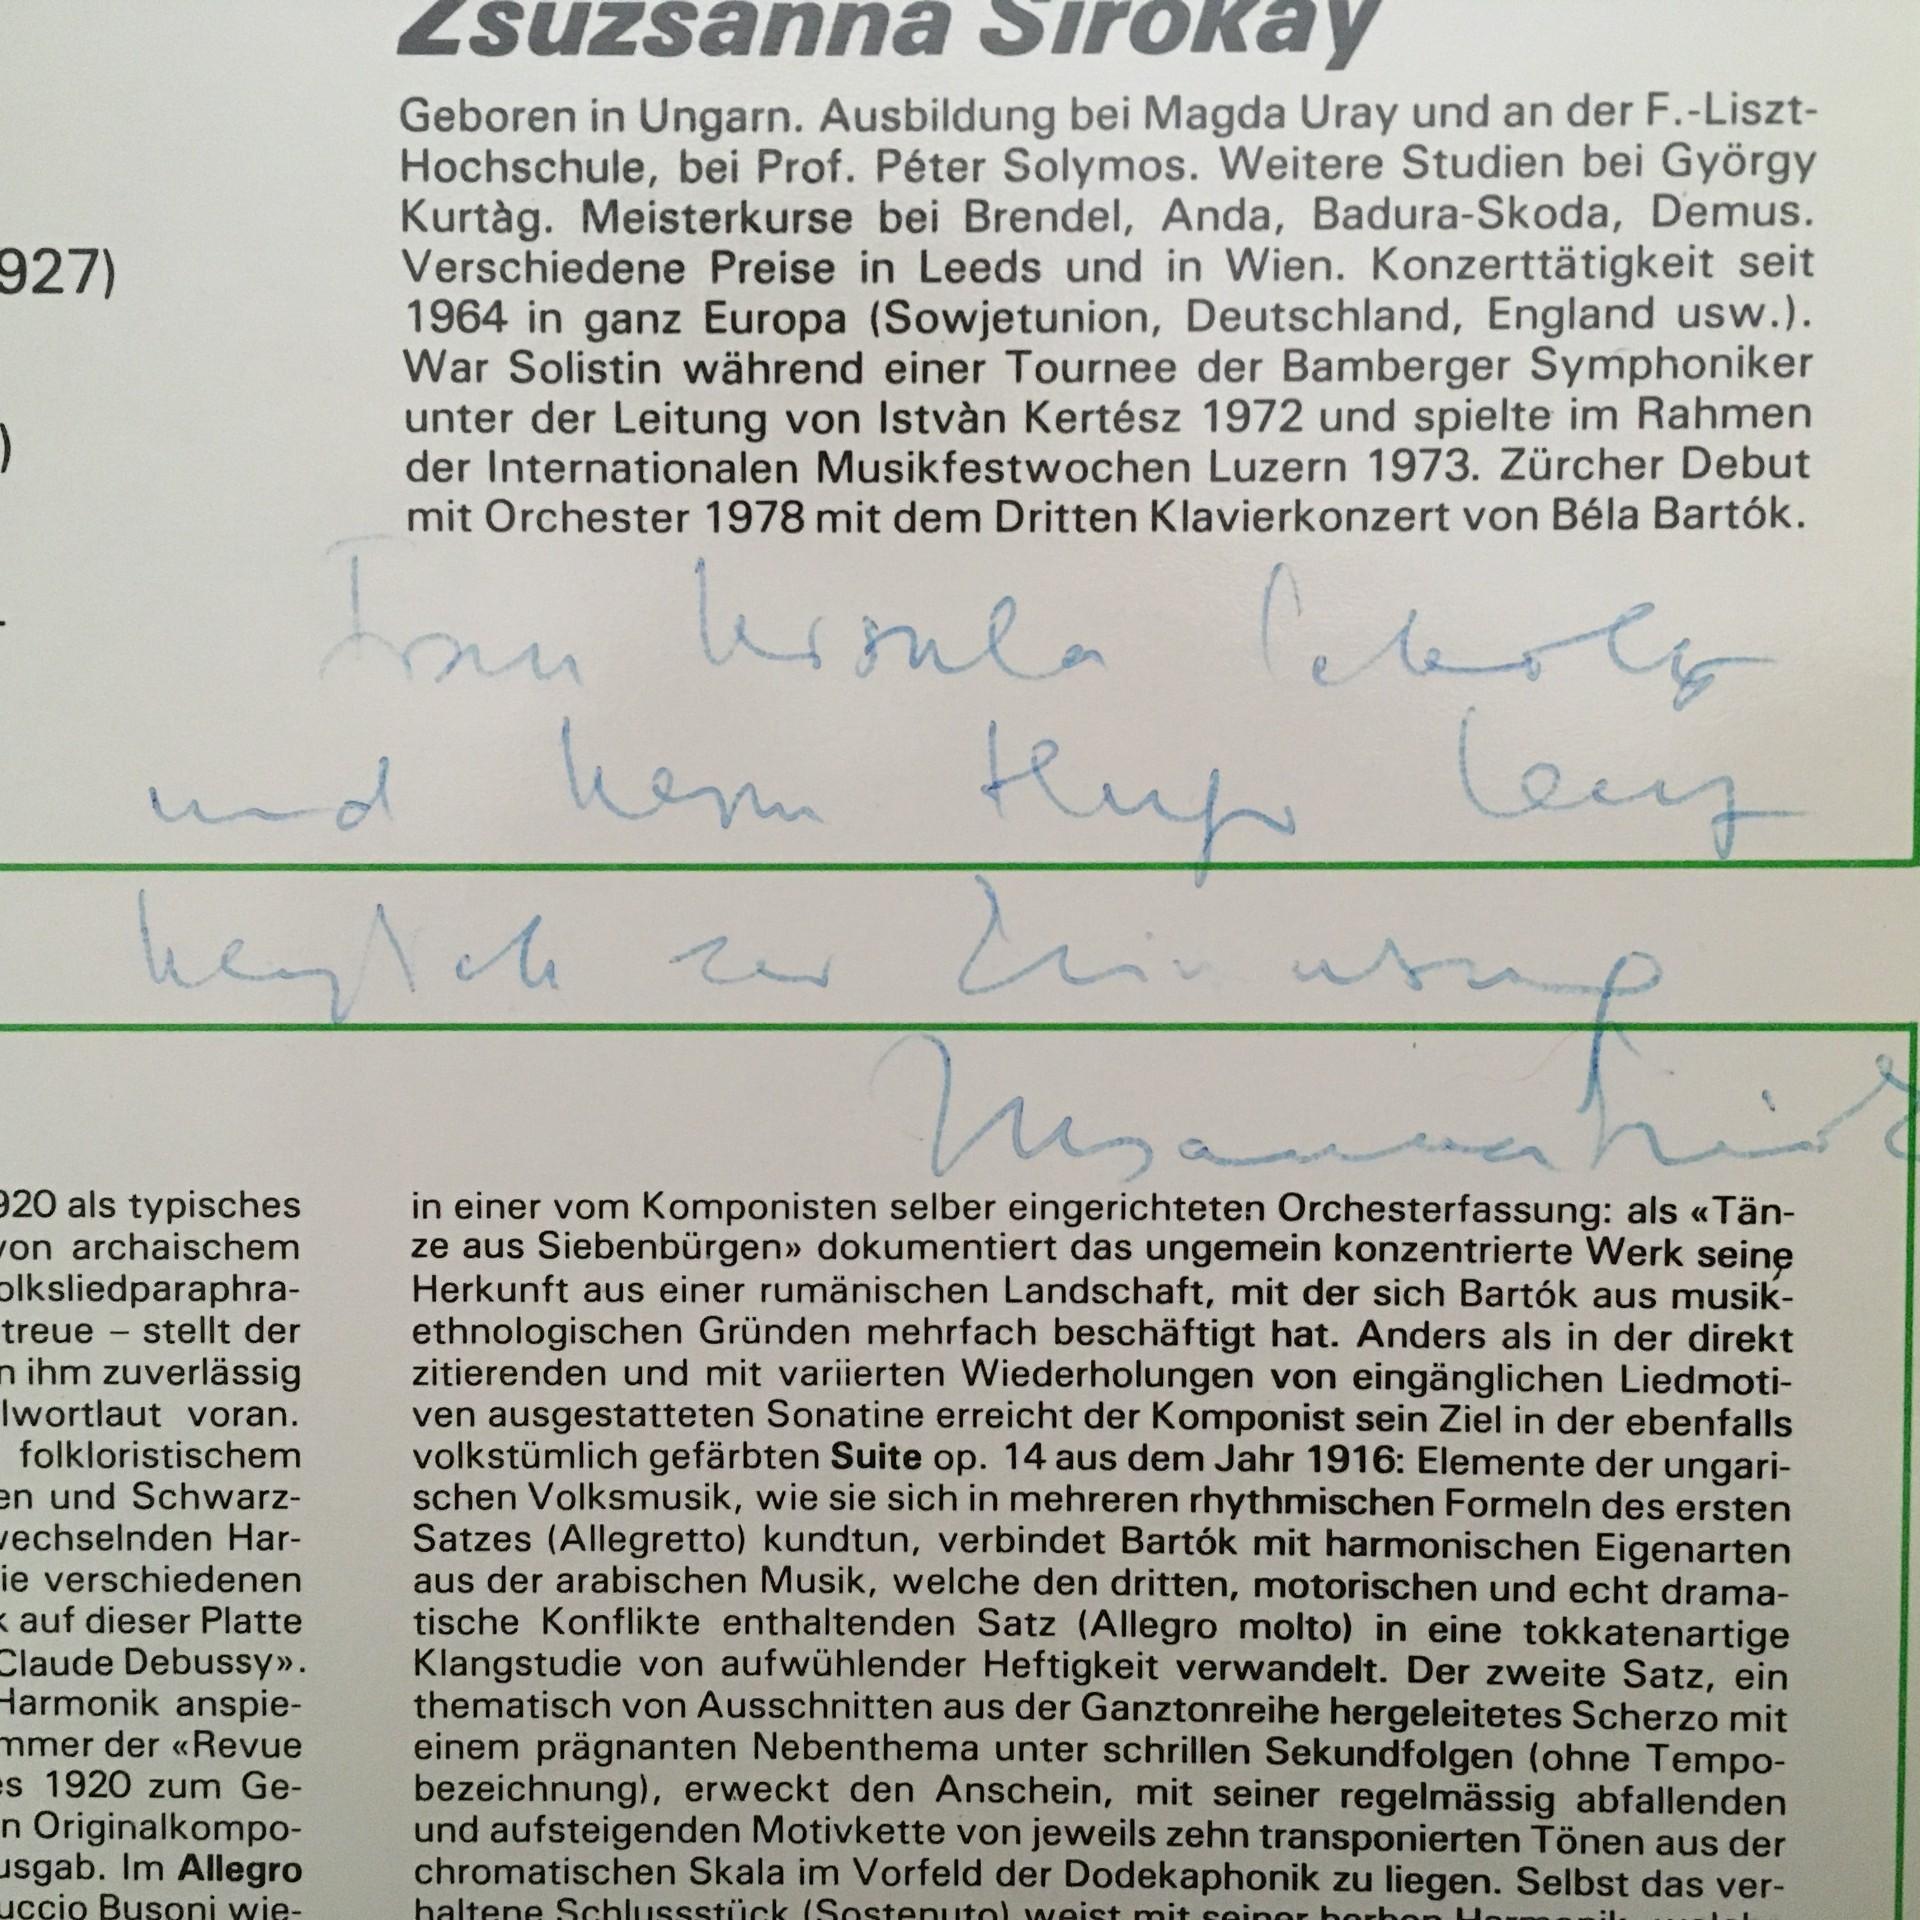 Zsuzsanna Sirokay
Geboren in Ungarn. Ausbildung bei Magda Uray und an der F.-Liszt-
Hochschule, bei Prof. Péter Solymos. Weitere Studien bei György
Kurtàg. Meisterkurse bei Brendel, Anda, Badura-Skoda, Demus.
Verschiedene Preise in Leeds und in Wien. Konzerttätigkeit seit
1964 in ganz Europa (Sowjetunion, Deutschland, England usw.).
War Solistin während einer Tournee der Bamberger Symphoniker
unter der Leitung von Istvàn Kertész 1972 und spielte im Rahmen
der Internationalen Musikfestwochen Luzern 1973. Zürcher Debut
mit Orchester 1978 mit dem Dritten Klavierkonzert von Béla Bartók.
927)
)
Frau Ursula Scholz
und Herrn Hugo
herzlich zur Erinnerung
Zsuzsanna
920 als typisches
von archaischem
olksliedparaphra-
treue – stellt der
n ihm zuverlässig
lwortlaut voran.
folkloristischem
en und Schwarz-
wechselnden Har-
ie verschiedenen
k auf dieser Platte
Claude Debussy».
Harmonik anspie-
mmer der «Revue
es 1920 zum Ge-
n Originalkompo-
usgab. Im Allegro
uccio Busoni wie-
in einer vom Komponisten selber eingerichteten Orchesterfassung: als «Tän-
ze aus Siebenbürgen» dokumentiert das ungemein konzentrierte Werk seine
Herkunft aus einer rumänischen Landschaft, mit der sich Bartók aus musik-
ethnologischen Gründen mehrfach beschäftigt hat. Anders als in der direkt
zitierenden und mit variierten Wiederholungen von eingänglichen Liedmoti-
ven ausgestatteten Sonatine erreicht der Komponist sein Ziel in der ebenfalls
volkstümlich gefärbten Suite op. 14 aus dem Jahr 1916: Elemente der ungari-
schen Volksmusik, wie sie sich in mehreren rhythmischen Formeln des ersten
Satzes (Allegretto) kundtun, verbindet Bartók mit harmonischen Eigenarten
aus der arabischen Musik, welche den dritten, motorischen und echt drama-
tische Konflikte enthaltenden Satz (Allegro molto) in eine tokkatenartige
Klangstudie von aufwühlender Heftigkeit verwandelt. Der zweite Satz, ein
thematisch von Ausschnitten aus der Ganztonreihe hergeleitetes Scherzo mit
einem prägnanten Nebenthema unter schrillen Sekundfolgen (ohne Tempo-
bezeichnung), erweckt den Anschein, mit seiner regelmässig abfallenden
und aufsteigenden Motivkette von jeweils zehn transponierten Tönen aus der
chromatischen Skala im Vorfeld der Dodekaphonik zu liegen. Selbst das ver-
haltene Schlussstück (Sostenuto) weist mit seiner herben Harmonik